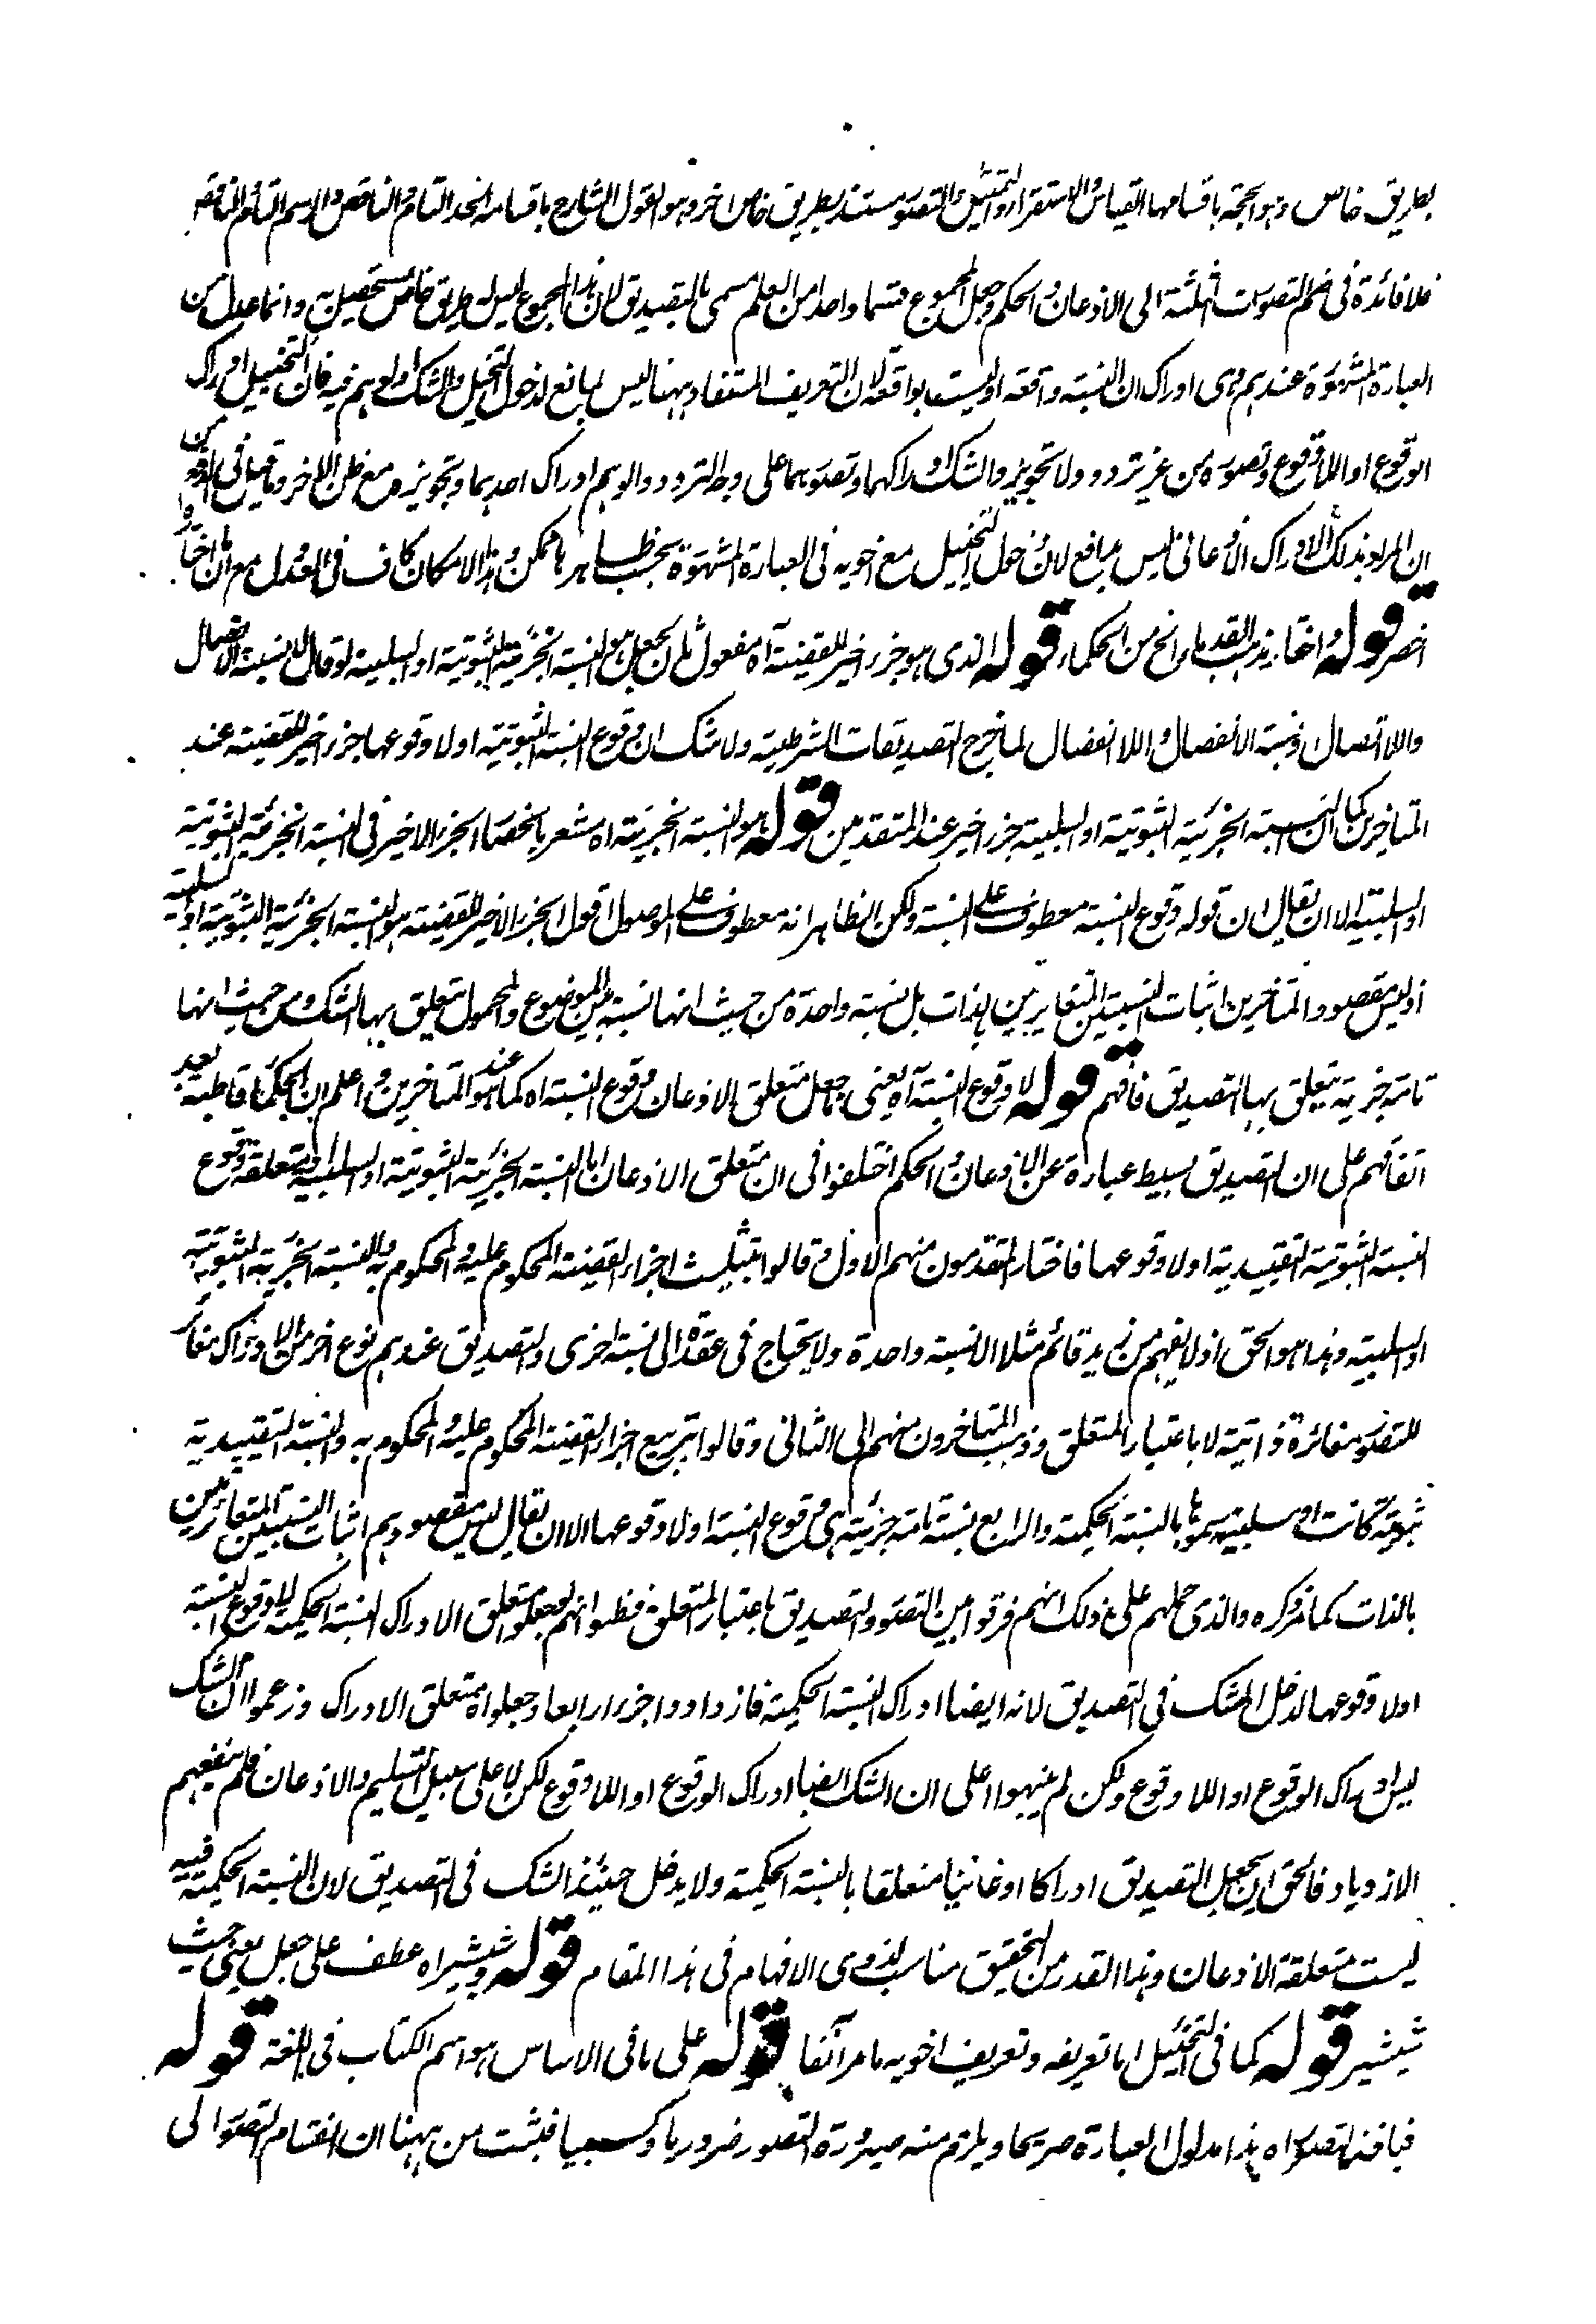 بطريق خاص وهو الحجة باقسامها القياس والاستقراء والتمثيل والتصور مستند بطريق خاص اخر وهو القول الشارح باقسامه الحد التام والناقص والرسم التام والناقص
فلا فائدة في ضم التصورات الثلثة الى الاذعان والحكم وجعل المجموع قسما واحدا من العلم مسمى بالتصديق لان هذا المجموع ليس له طريق خاص يستحصل به وانما عدل من
العبارة المشهورة عندهم وهى ادراك ان النسبة واقعة او ليست بواقعة لان التعريف المستفاد ههنا ليس بمانع لدخول التخييل والشك والوهم فيه فان التخييل ادراك
الوقوع او اللاوقوع وتصوره من غير تردد ولا تجويز والشك ادراكهما وتصورهما على وجه التردد والوهم ادراك احدهما وتجويزه مع ظن الاخر وما قيل في الدفع من
ان المراد بذلك الادراك الاذعاني ليس بدافع لان دخول التخييل مع اخويه في العبارة المشهورة بحسب الظاهر ممكن وهذا الامكان كاف في العدول مع ان ما اختاره
اخصر قوله واختار مذهب القدماء الخ من الحكماء قوله الذي هو جزء اخير للقضية آه مفعول ثان لجعل وهو النسبة الخبرية الثبوتية او السلبية لو قال لا نسبة الاتصال
واللااتصال ونسبة الانفصال واللاانفصال لما خرج التصديقات الشرطية ولا شك ان وقوع النسبة الثبوتية او لا وقوعها جزء اخير للقضية عند
المتاخرين كما ان النسبة الخبرية الثبوتية او السلبية جزء اخير عند المتقدمين قوله هو النسبة الخبرية اه مشعر بانحصار الجزء الاخير في النسبة الخبرية الثبوتية
او السلبية الا ان يقال ان قوله وقوع النسبة معطوف على النسبة ولكن الظاهر انه معطوف على الموصول اقول الجزء الاخير للقضية هو النسبة الخبرية الثبوتية او السلبية
اذ ليس مقصود المتاخرين اثبات النسبتين المتغايرتين بالذات بل نسبة واحدة من حيث انها نسبة بين الموضوع والمحمول يتعلق بها الشك ومن حيث انها
تامة خبرية يتعلق بها التصديق فافهم قوله لا وقوع النسبة آه يعني ما جعل متعلق الاذعان وقوع النسبة اه كما هو عند المتاخرين واعلم ان الحكماء قاطبة بعد
اتفاقهم على ان التصديق بسيط عبارة عن الاذعان والحكم اختلفوا في ان متعلق الاذعان اما النسبة الخبرية الثبوتية او السلبية او متعلقه وقوع
النسبة الثبوتية التقييدية او لا وقوعها فاختار المتقدمون منهم الاول وقالوا بتثليث اجزاء القضية المحكوم عليه والمحكوم به والنسبة الخبرية الثبوتية
او السلبية وهذا هو الحق اذ لا يفهم من زيد قائم مثلا الا نسبة واحدة ولا يحتاج في عقده الى نسبة اخرى والتصديق عندهم نوع اخر من الادراك مغائر
للتصور مغائرة ذاتية لا باعتبار المتعلق وذهب المتاخرون منهم الى الثاني وقالوا بتربيع اجزاء القضية المحكوم عليه والمحكوم به والنسبة التقييدية
ثبوتية كانت او سلبية سموها بالنسبة الحكمية والرابع نسبة تامة خبرية هي وقوع النسبة او لا وقوعها الا ان يقال ليس مقصودهم اثبات النسبتين المتغائرتين
بالذات كما مر ذكره والذي حملهم على ذلك انهم فرقوا بين التصور والتصديق باعتبار المتعلق فظنوا انهم لو جعلوا متعلق الادراك النسبة الحكمية لا وقوع النسبة
او لا وقوعها لدخل الشك في التصديق لانه ايضا ادراك النسبة الحكمية فازدادوا جزءا رابعا وجعلواه متعلق الادراك وزعموا ان الشك
ليس ادراك الوقوع او اللاوقوع ولكن لم ينبهوا على ان الشك ايضا ادراك الوقوع او اللاوقوع لكن لا على سبيل التسليم والاذعان فلم ينفعهم
الازدياد فالحق ان يجعل التصديق ادراكا اذعانيا متعلقا بالنسبة الحكمية ولا يدخل حينئذ الشك في التصديق لان النسبة الحكمية فيه
ليست متعلقة الاذعان وهذا القدر من التحقيق مناسب لذوي الافهام في هذا المقام قوله ويشير اه عطف على جعل يعني حيث
يشير قوله كما في التخييل اما تعريفه وتعريف اخويه ما مر آنفا قوله على ما في الاساس هو اسم الكتاب في اللغة قوله
فياخذ التصور اه هذا مدلول العبارة صريحا ويلزم منه صيرورة التصور ضروريا وكسبيا فيثبت من ههنا ان انقسام التصور الى